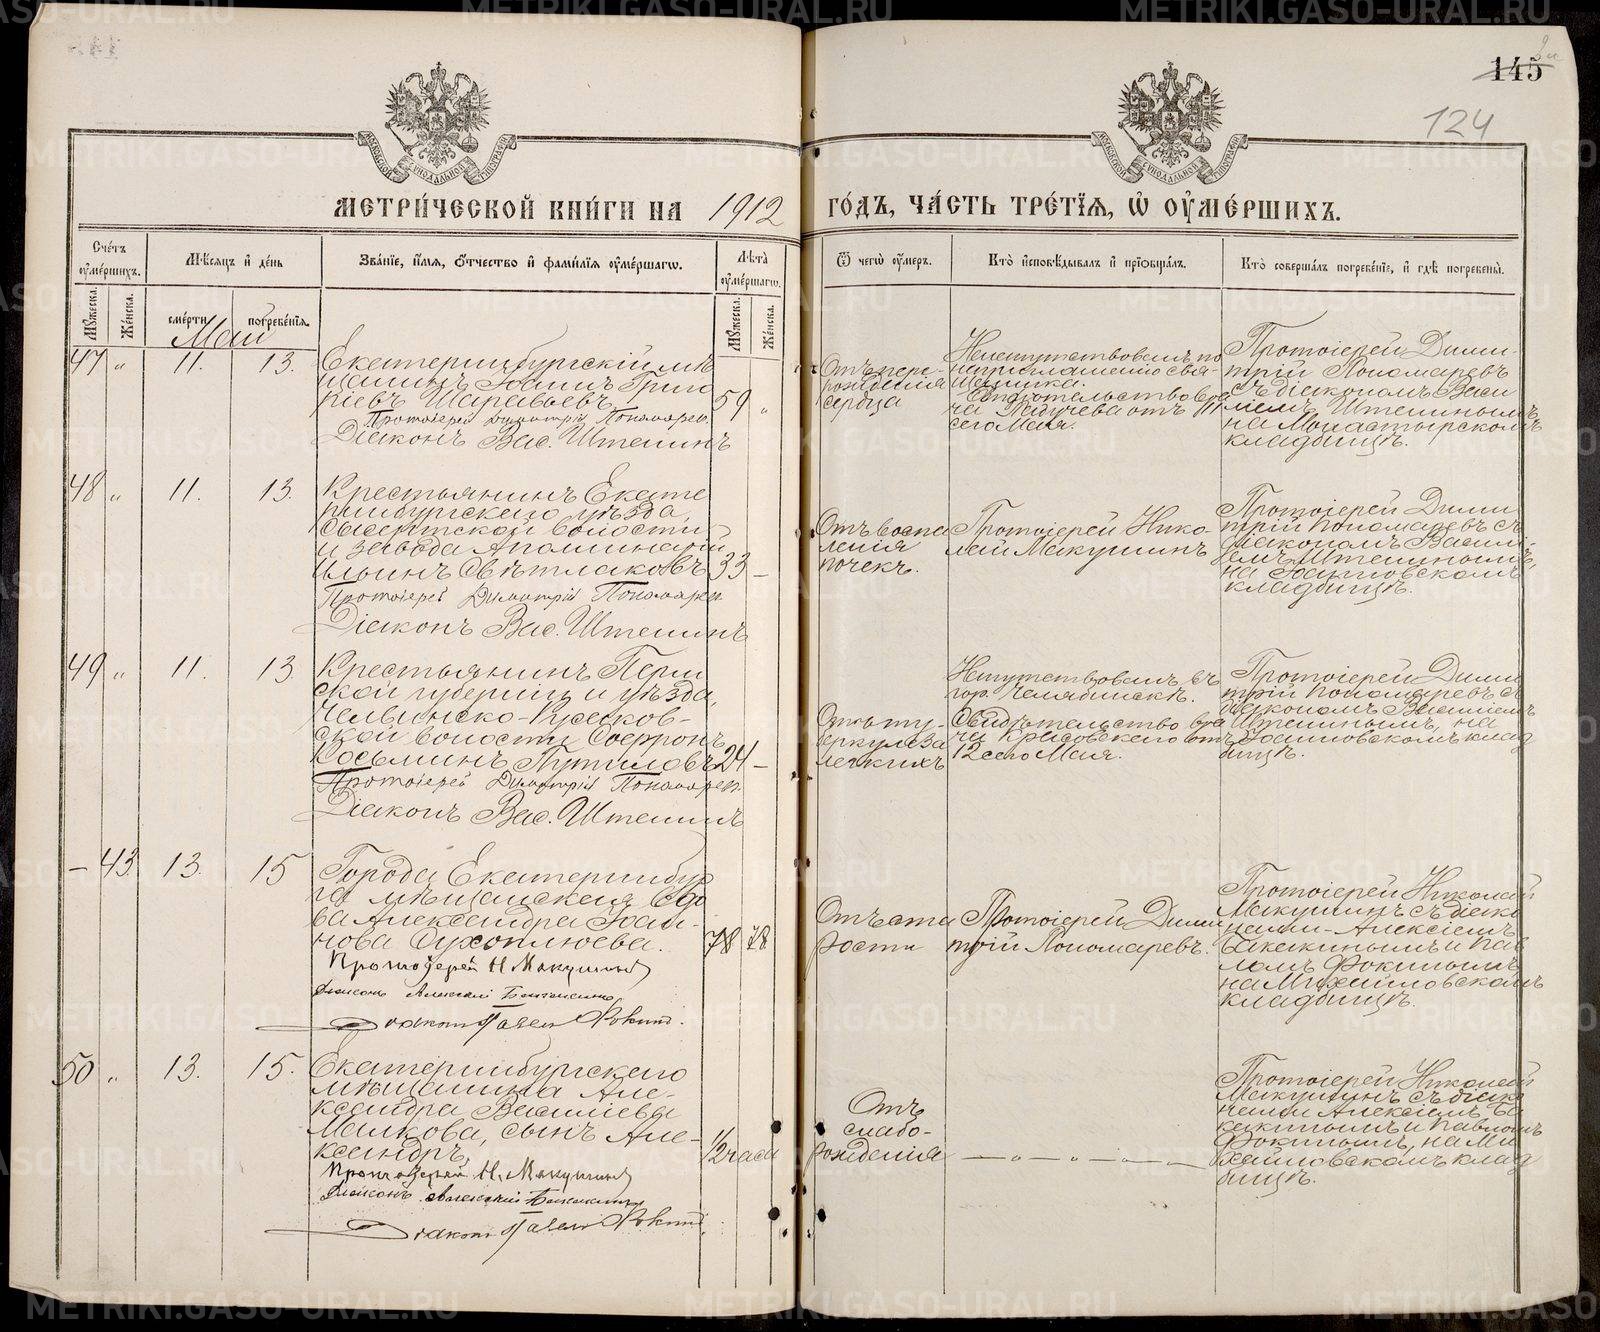 145
124
МЕТРИ́ЧЕСКОЙ КНИ́ГИ НА 1912 ГО́ДЪ, ЧА́СТЬ ТРЕ́ТІѦ, Ѡ ОУМЕ́РШИХЪ.
Сче́тъ оуме́ршихъ.
Мѣ́сяцъ и де́нь
Зва́нїе, и́мѧ, ѻ́тчество и фами́лїѧ оуме́ршагѡ.
Лѣта̀ оуме́ршагѡ.
Ѿ чегѡ̀ оу́меръ.
Кто̀ и҆сповѣ́дывалъ и҆ прїѡбща́лъ.
Кто̀ соверша́лъ погребе́нїе, и҆ гдѣ̀ погребены̀.
Мꙋ́жеска.
Же́нска.
сме́рти
погребе́нїѧ.
Мꙋ́жеска.
Же́нска.
Май
47 " 11. 13.
Екатеринбургскій мѣ
щанинъ Іоаннъ Григо
ріевъ Шаравьевъ
59 "
Протоіерей Димитрій Пономарев
Діаконъ Вас. Штенинъ
Отъ пере-
рожденія
сердца
по
неприглашенію свя-
щенника.
Свидѣтельство вра
ча отъ 11
сего Мая.
Протоіерей Дими-
трій Пономаревъ
съ діакономъ Васи
ліемъ Штенинымъ
на Монастырскомъ
кладбищѣ.
48 " 11. 13.
Крестьянинъ Екате
ринбургскаго уѣзда,
Сысертской волости
и завода Аполлинарій
Ильинъ Свѣтлаковъ
33 —
Протоіерей Димитрій Пономарев
Діаконъ Вас. Штенинъ
Отъ воспа
ленія
почекъ.
Протоіерей Нико-
лай Макушинъ
Протоіерей Дими
трій Пономаревъ съ
діакономъ Васи-
емъ Штенинымъ,
на Іоанновскомъ
кладбищѣ.
49 " 11. 13.
Крестьянинъ Перм
ской губерніи и уѣзда,
ской волости Софронъ
Косьминъ Путиловъ
24 —
Протоіерей Димитрій Пономарев
Діаконъ Вас. Штенинъ
Отъ ту-
беркулеза
легкихъ
въ
гор. Челябинскѣ.
Свидѣтельство вра
ча Красовскаго отъ
12 сего Мая.
Протоіерей Дими
трій Пономаревъ съ
діакономъ Василіемъ
Штенинымъ, на
Іоанновскомъ клад
бищѣ.
— 43 13. 15
Города Екатеринбур
га мѣщанская вдо
ва Александра Іоан-
нова Сухоплюева.
78 78
Протоіерей Н. Макушинъ
Діаконъ Алексій
Діаконъ Павелъ Фокинъ.
Отъ ста
рости
Протоіерей Дими
трій Пономаревъ.
Протоіерей Николай
Макушинъ съ діако
нами — Алексіемъ
и Пав
ломъ Фокинымъ
на Михайловскомъ
кладбищѣ.
50 " 13. 15.
Екатеринбургскаго
мѣщанина Але-
ксандра Васильева
Малкова, сынъ Але-
ксандръ,
1/2 часа
Протоіерей Н. Макушинъ
Діаконъ Алексій
Діаконъ Павелъ Фокинъ.
Отъ
слабо-
рожденія
— " — " — " —
Протоіерей Николай
Макушинъ съ діако
нами Алексіемъ Ба
и Павломъ
Фокинымъ, на Ми
хайловскомъ клад
бищѣ.
METRIKI.GASO-URAL.RU